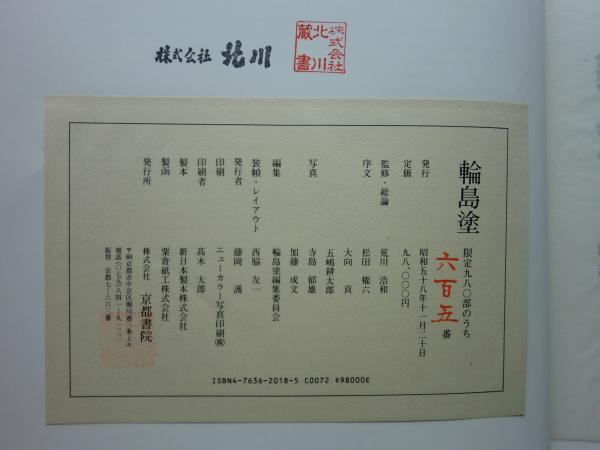 株式会社 北川
株式会社
北川
蔵書
輪島塗
限定九八〇部のうち
六百五番
発行 昭和五十八年十一月二十日
定価 九八、〇〇〇円
監修・総論 荒川 浩和
序文 松田 権六
大向 貢
写真 五嶋耕太郎
寺島 郁雄
加藤 成文
編集 輪島塗編集委員会
装幀・レイアウト 西脇 友一
発行者 藤岡 護
印刷 ニューカラー写真印刷㈱
印刷者 髙木 太郎
製本 新日本製本株式会社
製函 栗倉紙工株式会社
発行所 株式会社 京都書院
京都市中京区堀川通二条上ル
電話(〇七五)八四一-九一二三
振替 京都七-六六三番
ISBN4-7636-2018-5 C0072 ¥98000E